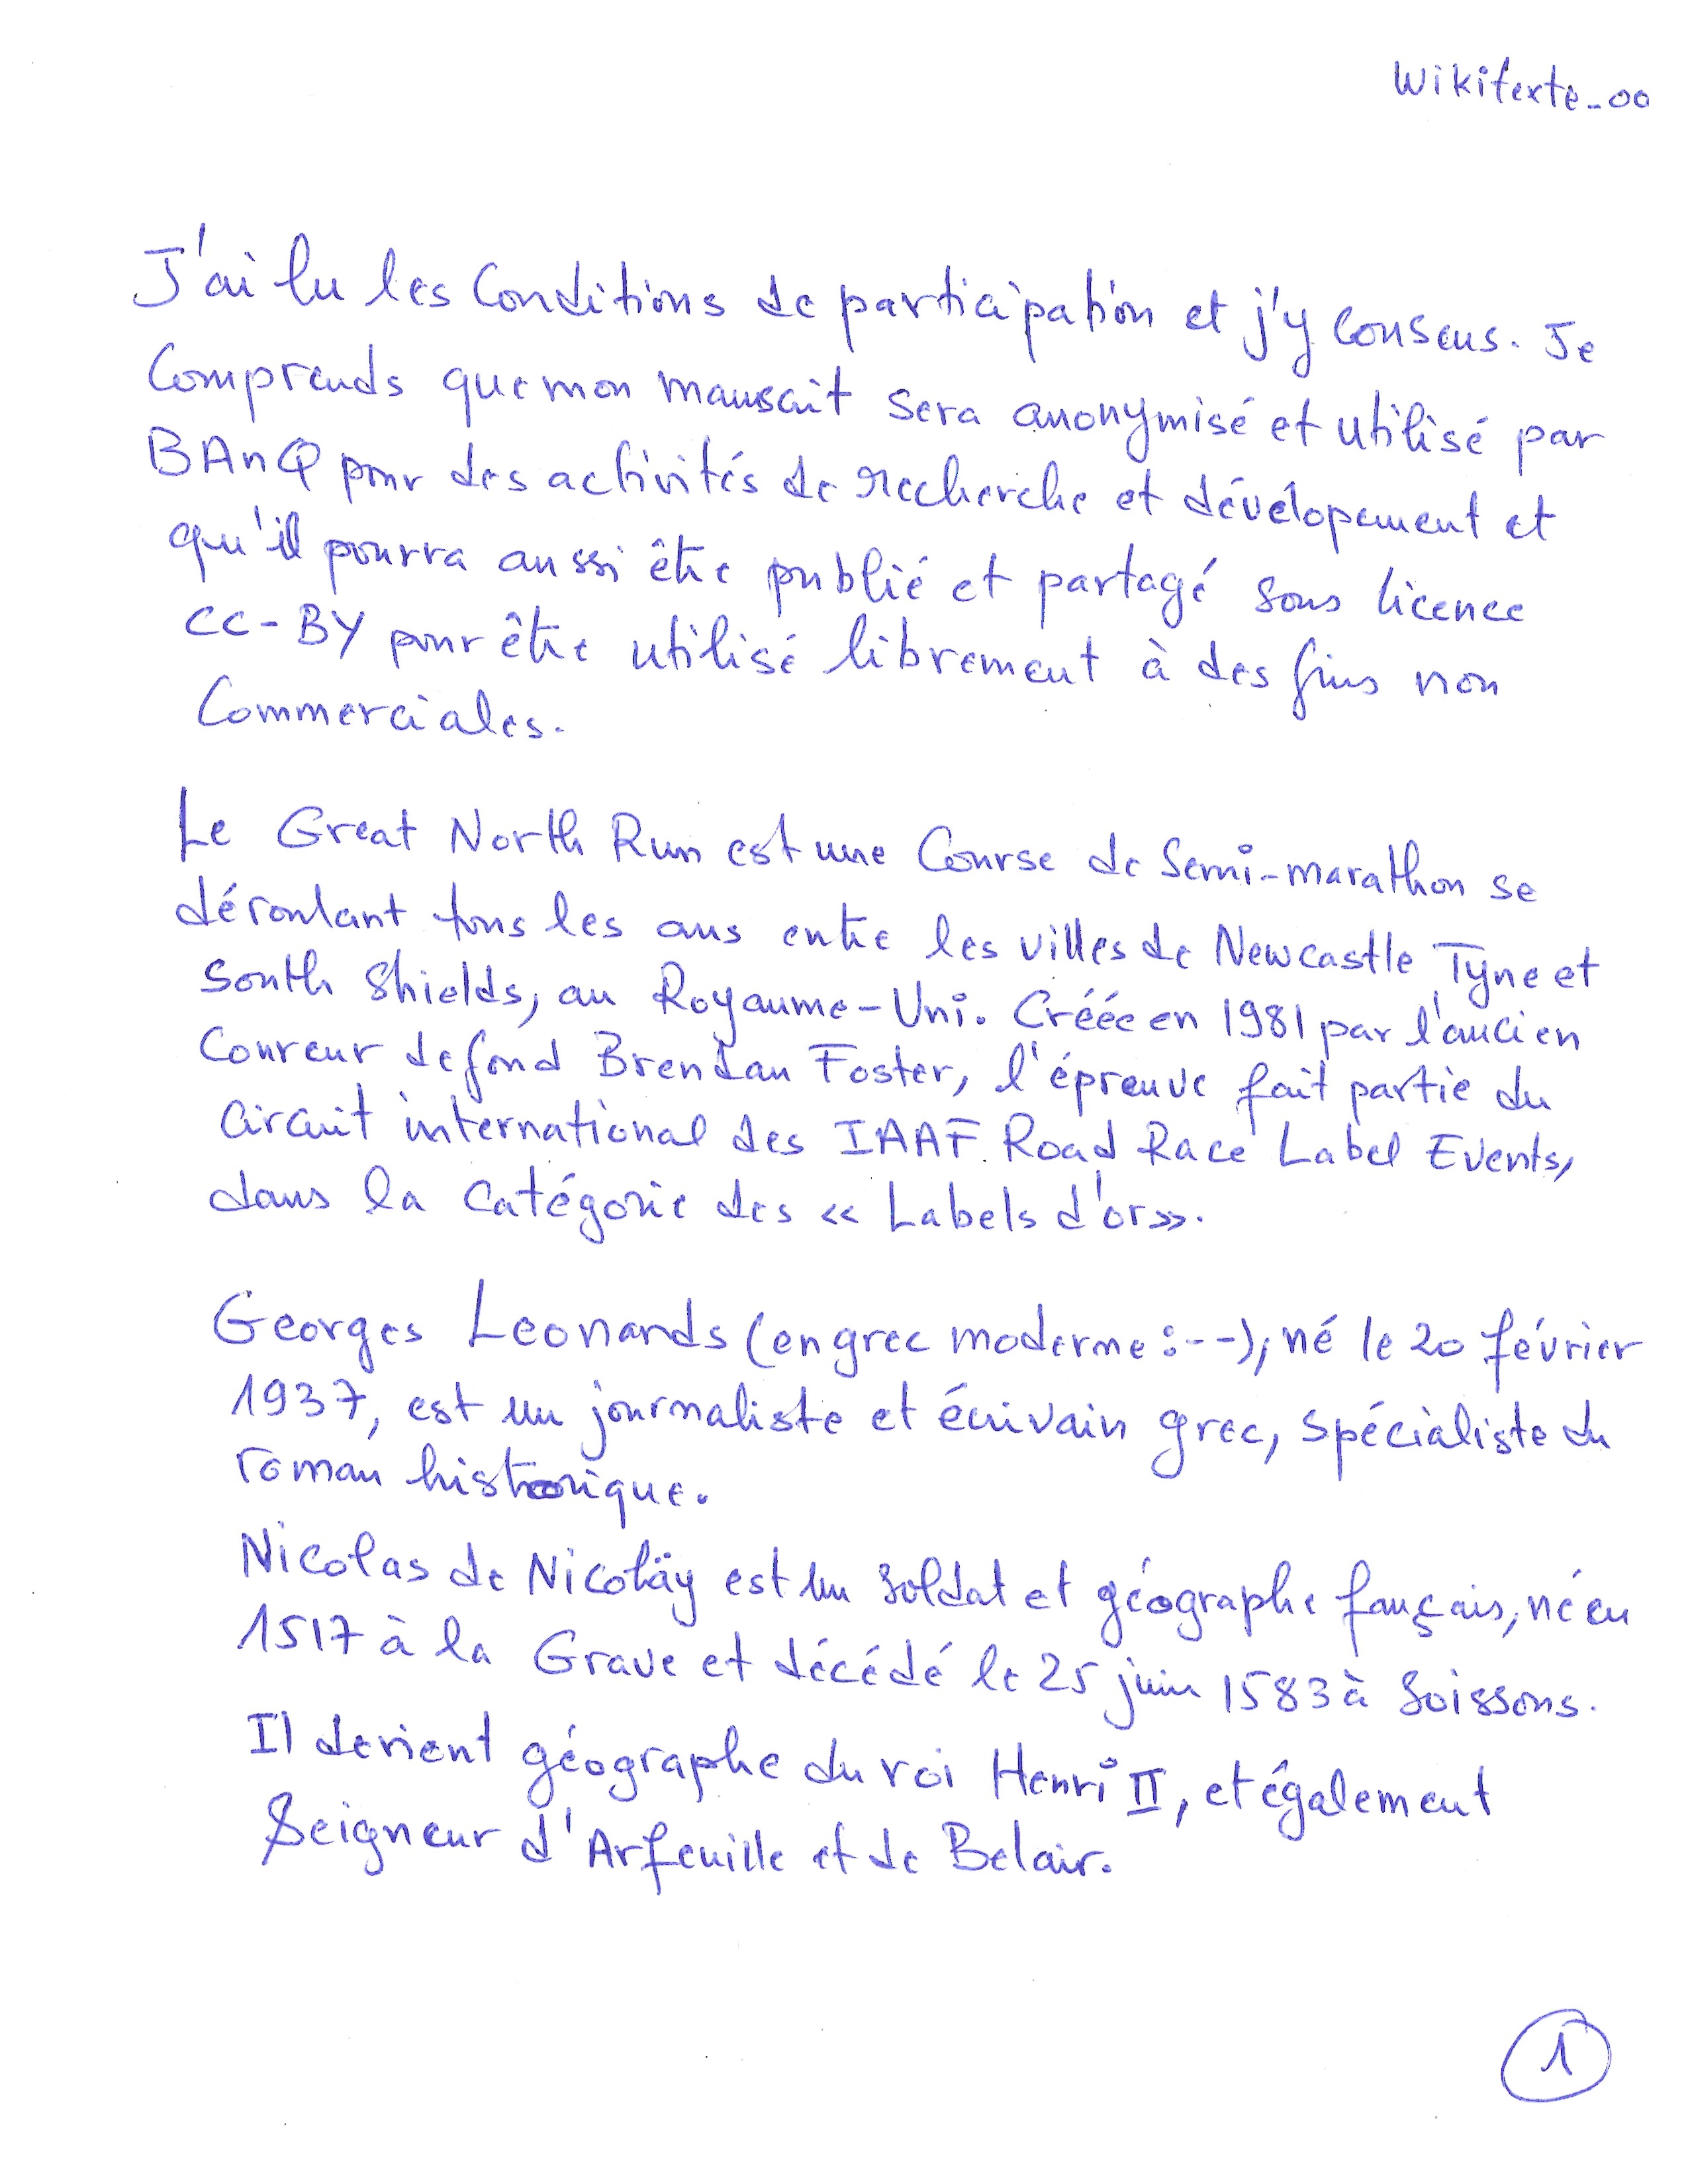 Wikitexte_00
J'ai lu les Conditions de participation et j'y consens. Je
Comprends que mon manuscrit sera anonymisé et utilisé par
BAnQ pour des activités de recherche et dévélopement et
qu'il pourra aussi être publié et partagé sous licence
CC-BY pour être utilisé librement à des fins non
Commerciales.
Le Great North Run est une Course de Semi-marathon se
déroulant tous les ans entre les villes de Newcastle Tyne et
South Shields, au Royaume-Uni. Créée en 1981 par l'ancien
Coureur de fond Brendan Foster, l'épreuve fait partie du
Circuit international des IAAF Road Race Label Events,
dans la Catégorie des « Labels d'or».
Georges Leonards (en grec moderne :--), né le 20 février
1937, est un journaliste et écrivain grec, spécialiste du
roman historique.
Nicolas de Nicoläy est un soldat et géographe français, né en
1517 à la Grave et décédé le 25 juin 1583 à Soissons.
Il devient géographe du roi Henri II, et également
Seigneur d'Arfeuille et de Belair.
1